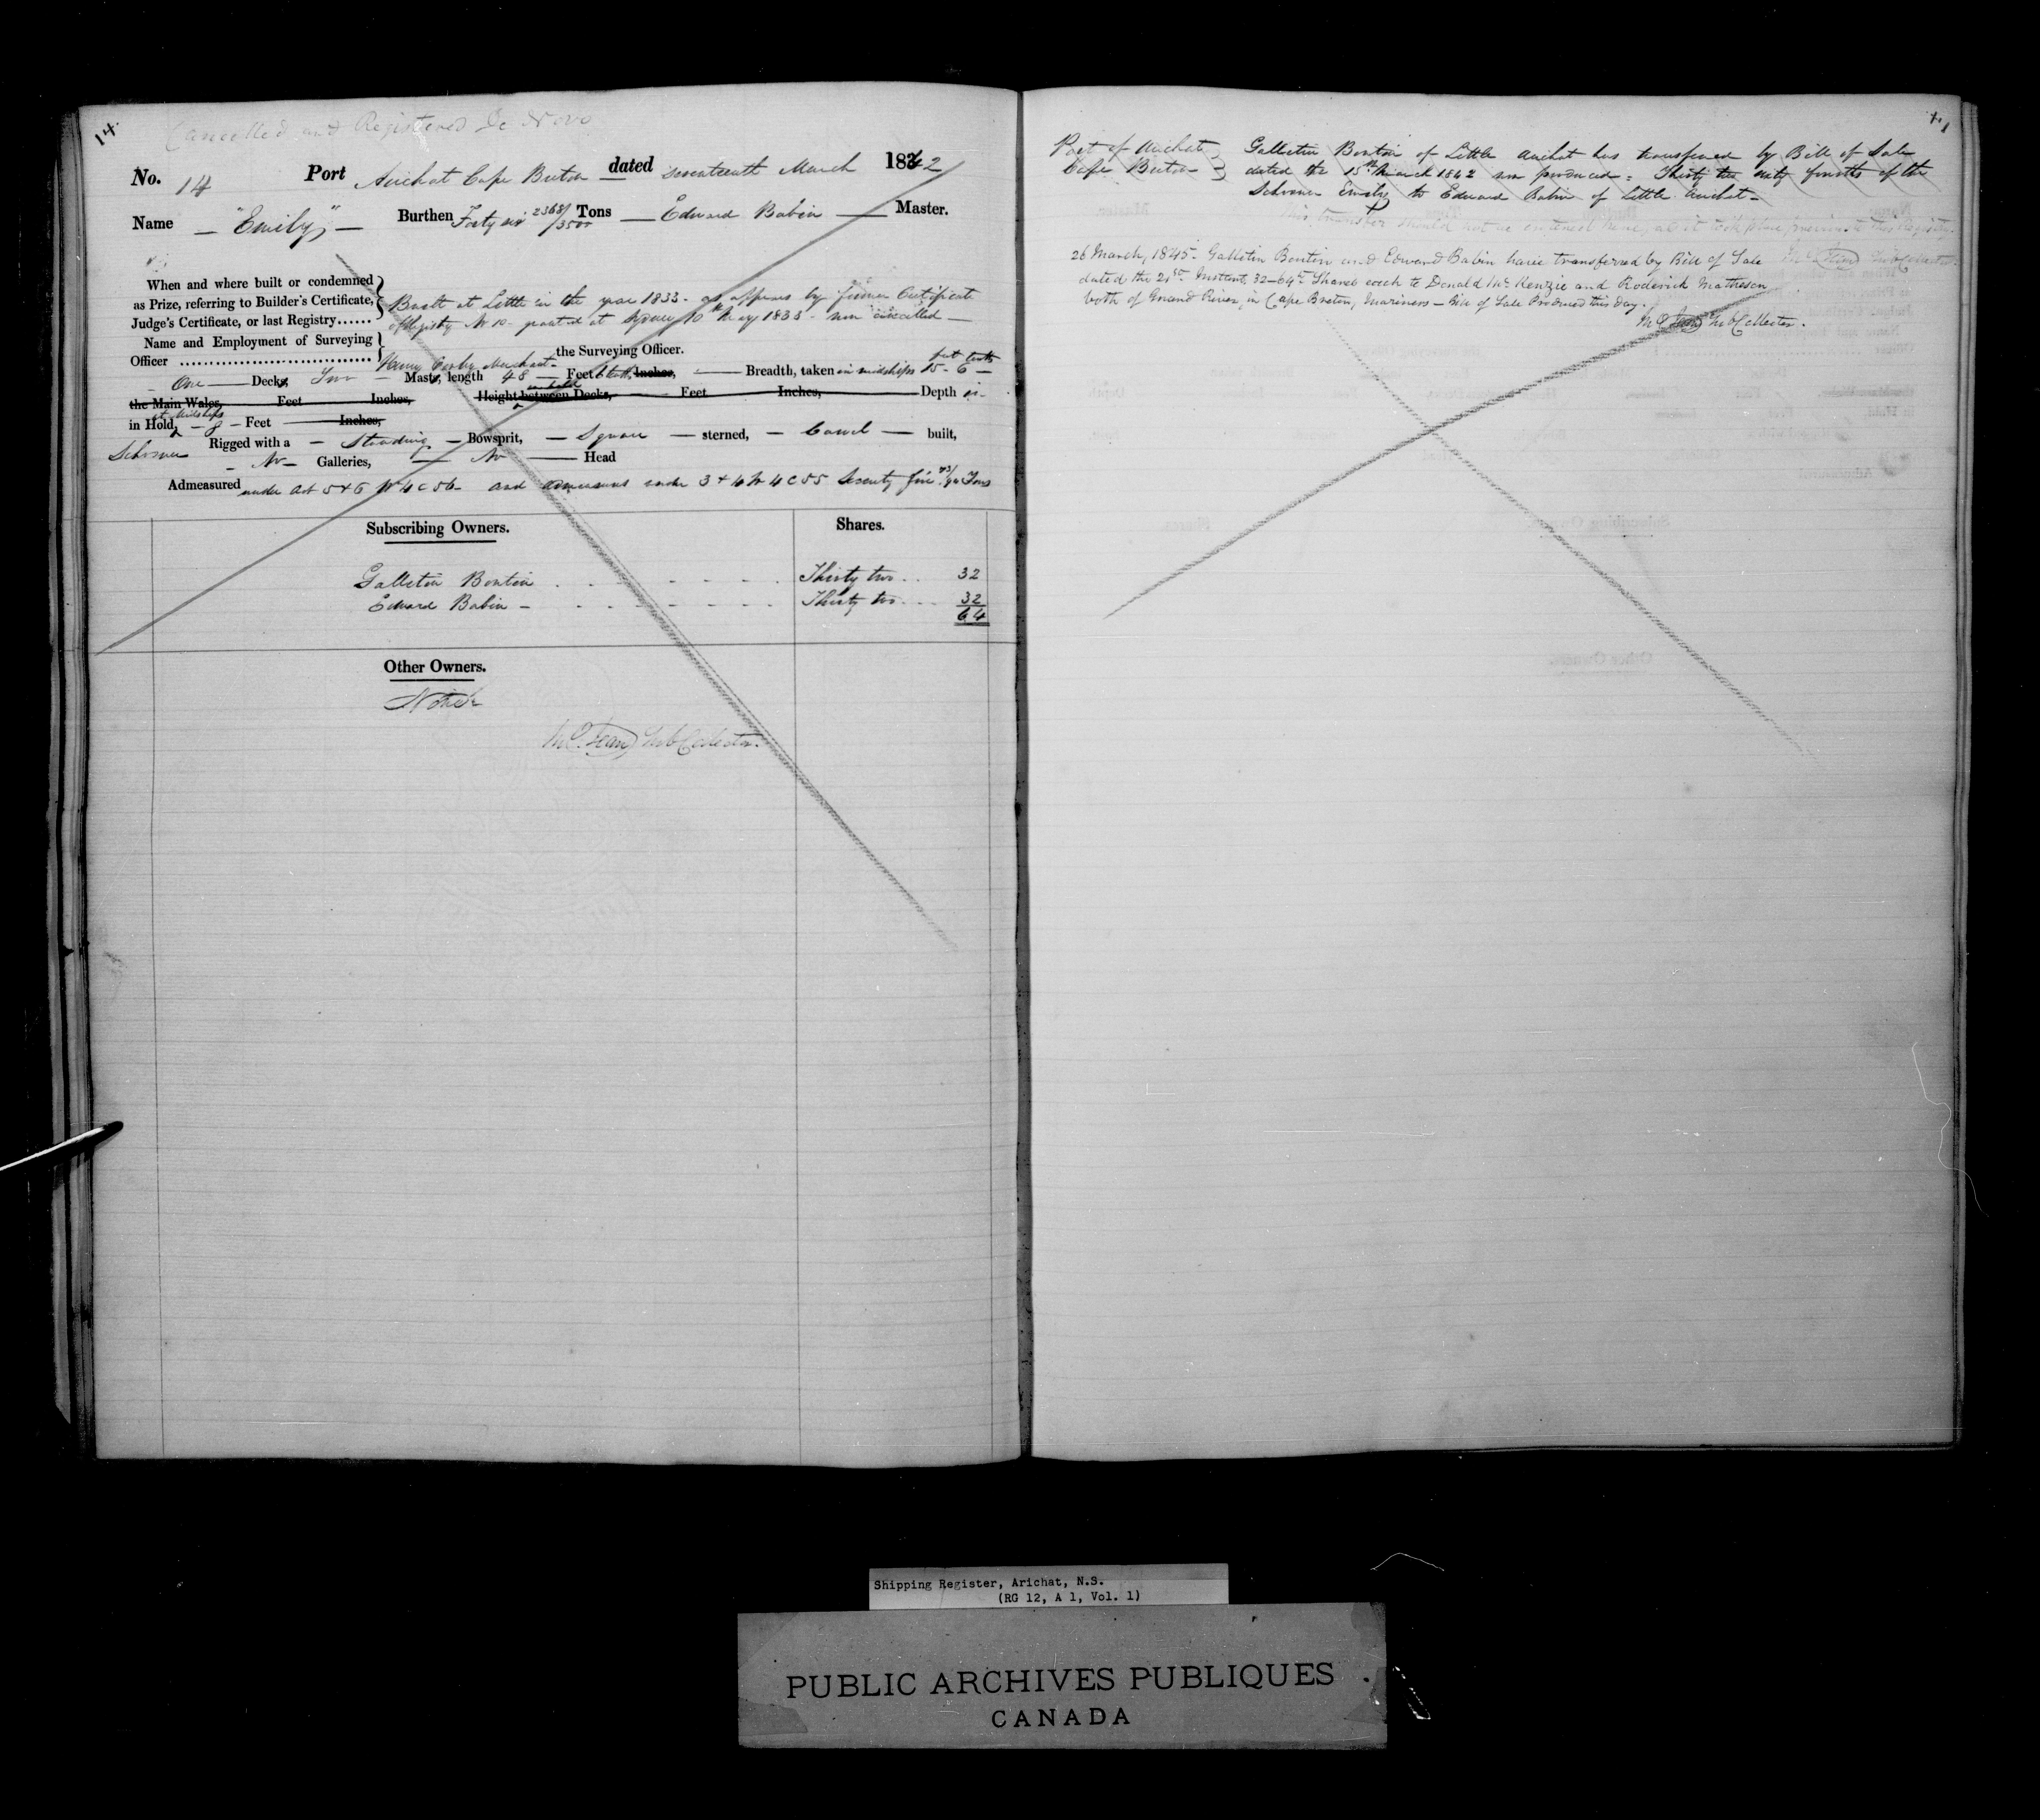 14.
Cancelled and Registered De Novo
No. 14 Port Arichat Cape Breton dated seventeenth March 1842
Name "Emily" Burthen Forty six 2368/3500 Tons Edward Babin Master.
When and where built or condemned
as Prize, referring to Builder's Certificate,
Judge's Certificate, or last Registry......
Built at Little in the year 1833. as appears by former Certificate
of Registry No 10 granted at Sydney 10th May 1833 - now cancelled -
Name and Employment of Surveying
Officer
Henry Merchant the Surveying Officer.
One Decks, Two Masts, length 48 Feet tenths Inches, Breadth, taken in midships 15 feet 6 tenths
the Main Wales, Feet Inches, Height between Decks, Feet Inches, Depth in
in Hold, at Midships 8 Feet Inches,
Schooner Rigged with a Standing Bowsprit, Square sterned, Carvel built,
No Galleries, No Head
Admeasured under act 5 & 6 W 4 C 56 and admeasures under 3 & 4 W 4 C 55 Seventy five Tons
Subscribing Owners. Shares.
Galletin Boutin Thirty two 32
Edward Babin Thirty two 32
64
Other Owners.
None
Sub Collector.
Port of Arichat
Cape Breton
Galletin Boutin of Little Arichat has transferred by Bill of Sale
dated the 15th March 1842 now produced = Thirty two sixty fourths of the
Schooner Emily to Edward Babin of Little Arichat -
This transfer should not be entered here, as it took place previous to this Registry.
Sub Collector
26 March, 1845. Galletin Boutin and Edward Babin have transferred by Bill of Sale
dated the 21st Instant, 32-64th Shares each to Donald McKenzie and Roderick Matheson
both of Grand River, in Cape Breton, Mariners - Bill of Sale Produced this day.
Sub Collector.
Shipping Register, Arichat, N.S.
(RG 12, A 1, Vol. 1)
PUBLIC ARCHIVES PUBLIQUES
CANADA